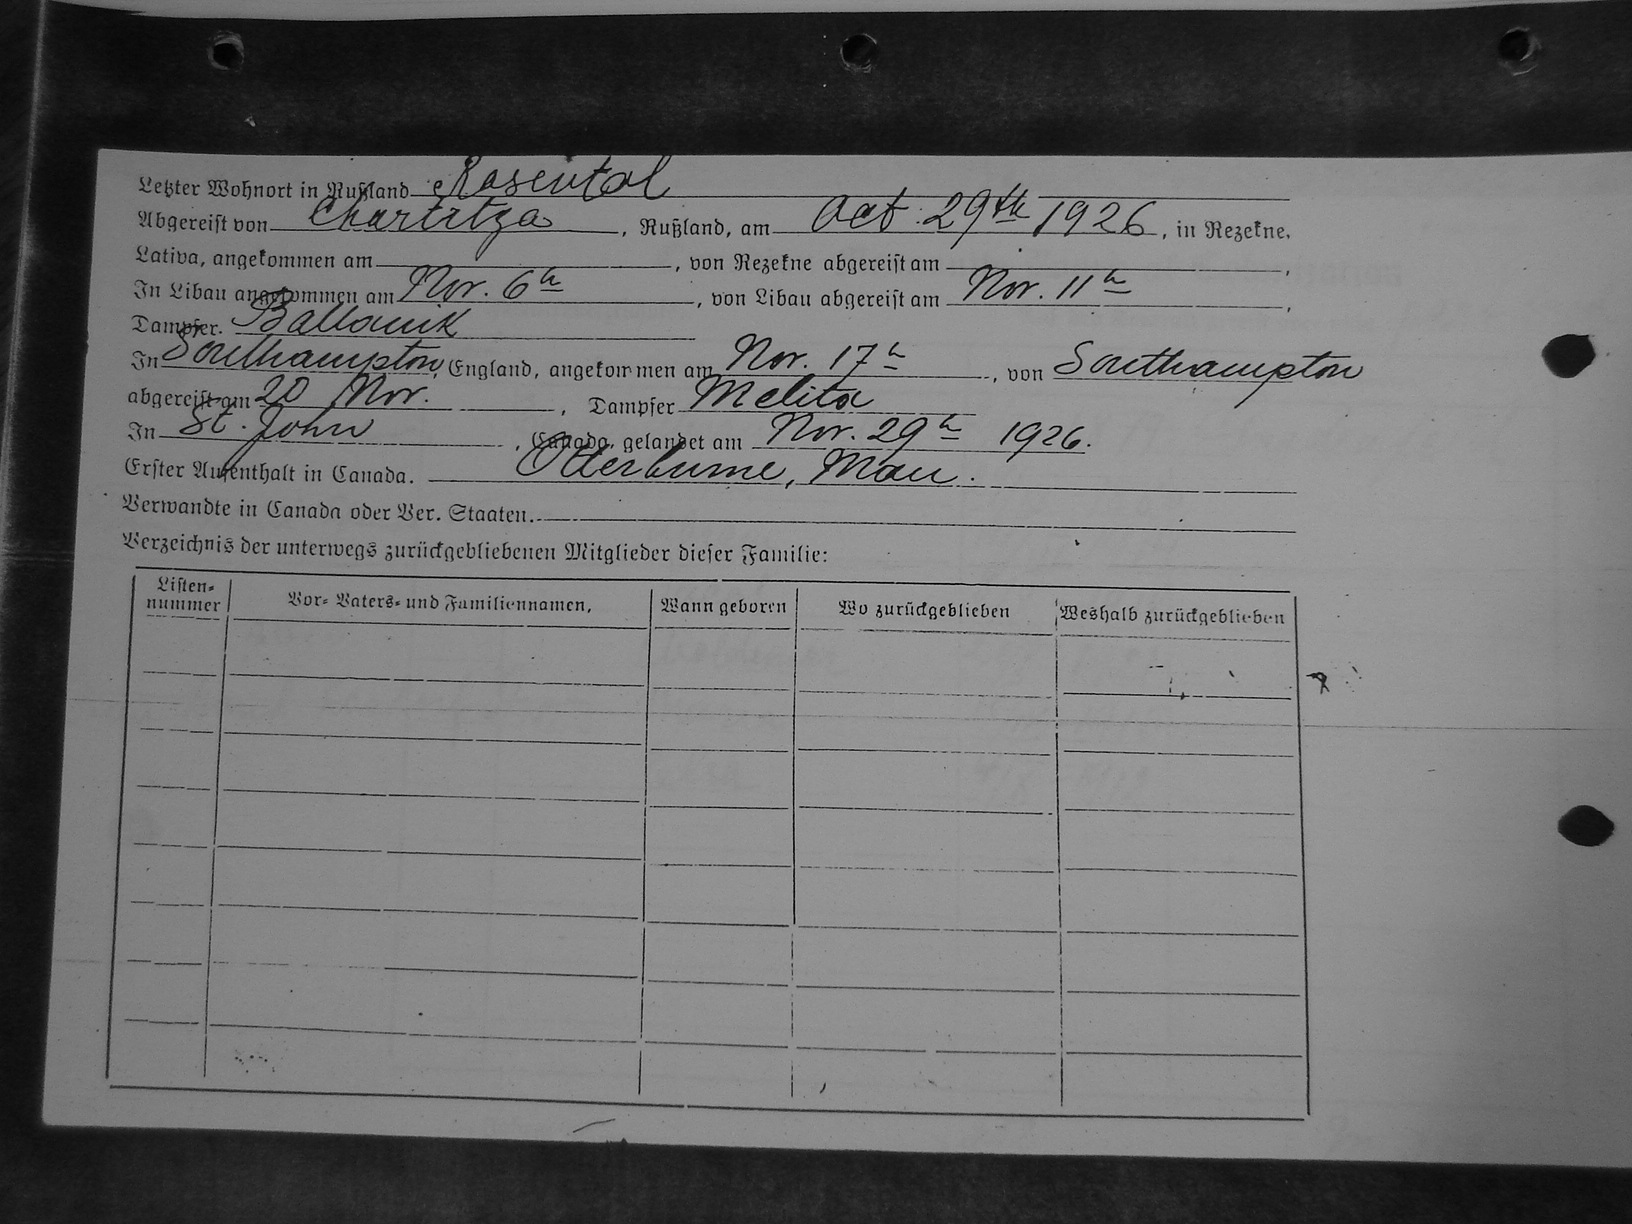 Letzter Wohnort in Rußland Rosental
Abgereist von Chartitza, Rußland, am Oct. 29th 1926, in Rezekne,
Lativa, angekommen am , von Rezekne abgereist am ,
In Libau angekommen am Nov. 6th , von Libau abgereist am Nov. 11th ,
Dampfer. Baltannik
In Southampton, England, angekommen am Nov. 17th , von Southampton
abgereist am 20 Nov. , Dampfer Melita
In St. John , Canada, gelandet am Nov. 29th 1926.
Erster Aufenthalt in Canada. Otterburne, Man.
Verwandte in Canada oder Ver. Staaten.
Verzeichnis der unterwegs zurückgebliebenen Mitglieder dieser Familie:
Listen-
nummer
Vor- Vaters- und Familiennamen,
Wann geboren
Wo zurückgeblieben
Weshalb zurückgeblieben